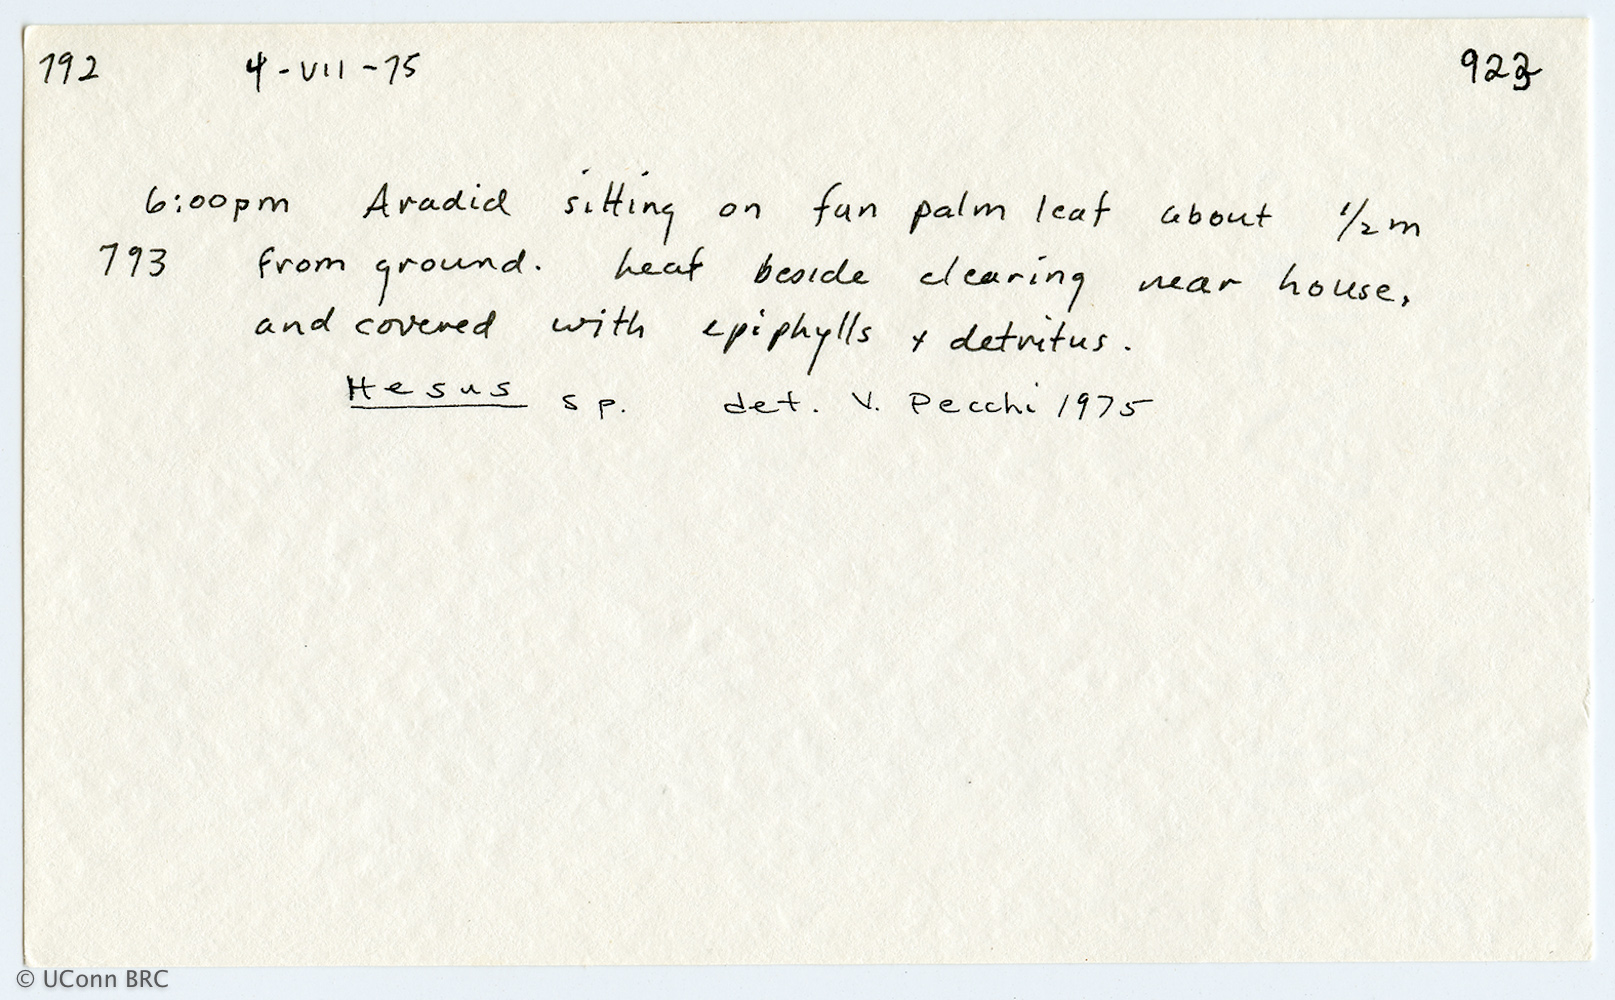 792 4-VII-75 923
6:00pm Aradid sitting on fan palm leaf about 1/2 m
793 from ground. Leaf beside clearing near house,
and covered with epiphylls + detritus.
Hesus sp. det. V. Pecchi 1975
© UConn BRC